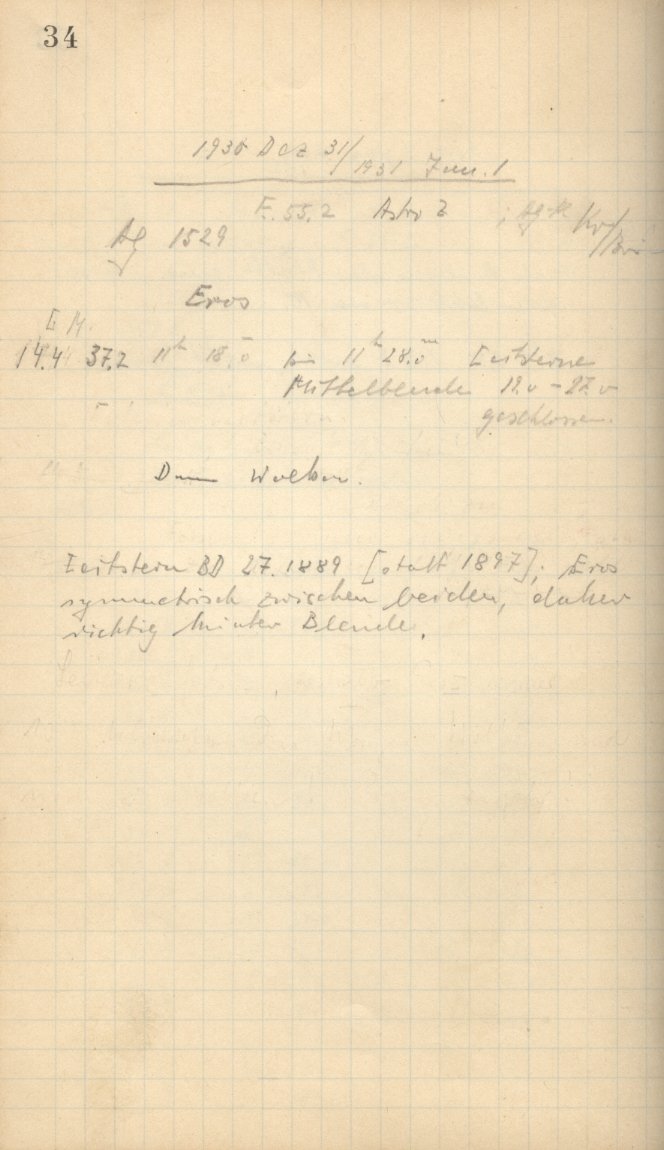 34
1930 Dez 31/1931 Jan. 1
F. 55,2 Astro Z
Ag 1529
Eros
14,4 37,2 11h 18,0 bis 11h 28,0m Leitsterne
Mittelblende 19.0 - 27.0
geschlossen.
Dann Wolken.
Leitstern BD 27.1889 [statt 1897]; Eros
symmetrisch zwischen beiden, daher
richtig hinter Blende.